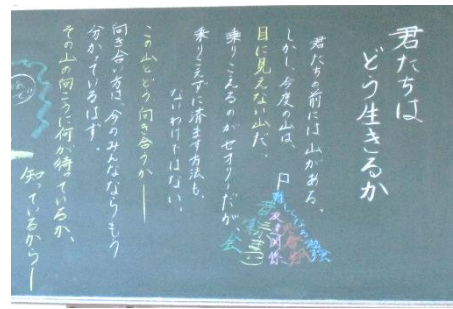 君たちは
どう生きるか
君たちの前には山がある。
しかし、今度の山は、
目に見えない山だ。
乗りこえるのがセオリーだが
乗りこえずに済ます方法も、
ないわけではない。
この山とどう向き合うか――
向き合い方は、今のみんなならもう
分かっているはず。
その山の向こうに何が待っているか、
知っているから――